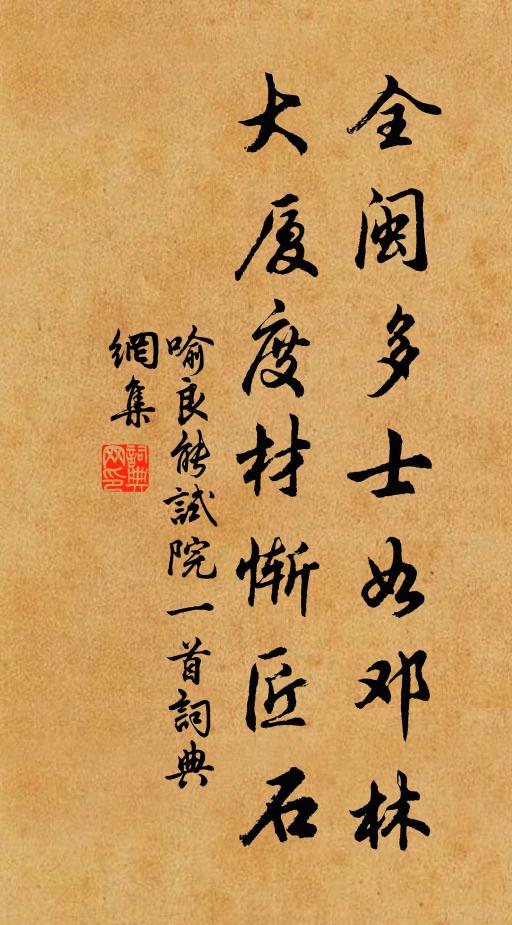 全闽多士如邓林
大厦度材惭匠石
喻良能試院一首詞典
網集
詞典
网印